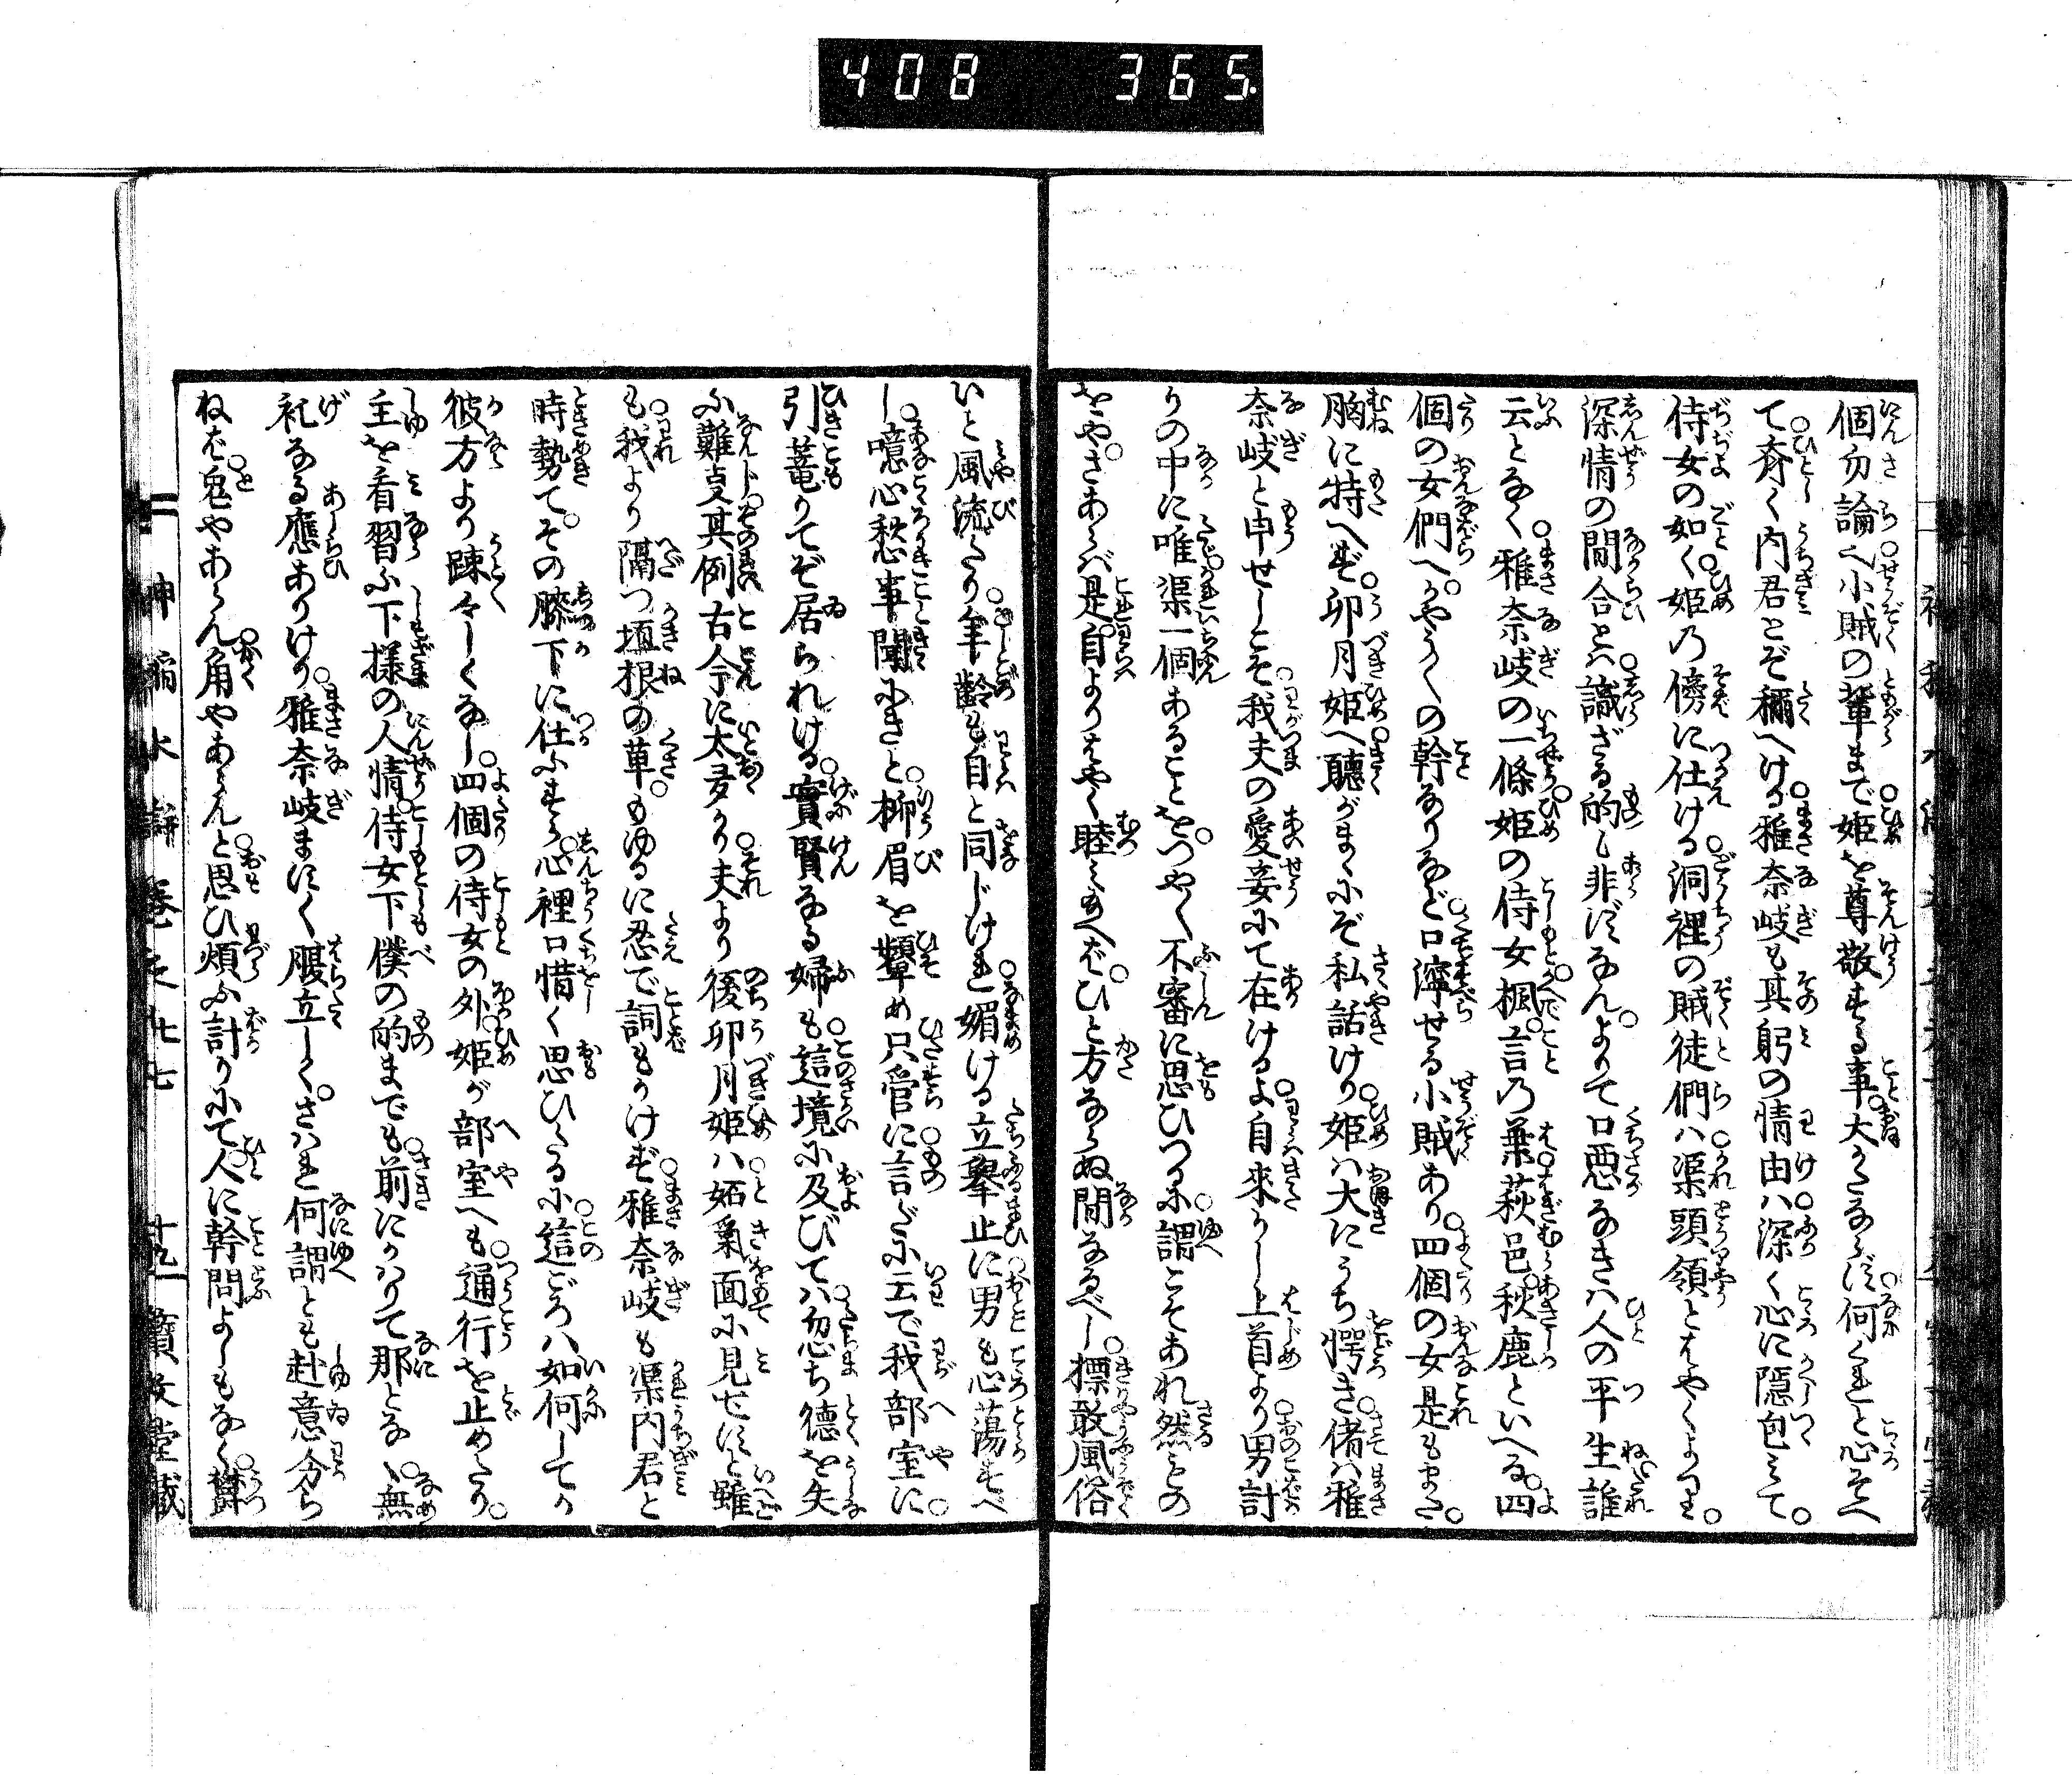 408 365
個勿論へ小賊の輩まで姫を尊敬する事大かたならず何くれと心そへ
て斉く内君とぞ稱へける雅奈岐も其躬の情由ハ深く心に隠包みて。
侍女の如く姫の傍に仕ける洞裡の賊徒們ハ渠頭領とはやくより。
深情の間合とハ識ざる的も非ずなん。よりて口悪なきハ人の平生誰
云となく雅奈岐の一條姫の侍女楓言の葉萩邑秋鹿といへる四
個の女們へ。かやう〳〵の幹なりなど口濘せる小賊あり四個の女是もまた。
胸に特へず卯月姫へ聽がまゝにぞ私話けり姫ハ大にうち愕き偖ハ雅
奈岐と申せしこそ我夫の愛妾にて在けるよ自來かし上首より男計
りの中に唯渠一個あることを。つや〳〵不審に思ひつるに謂こそあれ然との
をや。さあらバ是自よりはやく睦みもへバ。ひと方ならぬ間なるべし標致風俗
いと風流たり年齢も自と同じけれ媚ける立擧止に男も心蕩すべ
し噫心愁事聞にきと柳眉を顰め只管に言だに云で我部室に。
引篭りてぞ居られける實賢なる婦も這境に及びてハ忽ち徳を失
ふ難支其例古今に太多かり夫より後卯月姫ハ妬氣面に見せずと雖
も我より隔つ垣根の草。もゆるに忍で詞もかけず雅奈岐も渠内君と
時勢て。その膝下に仕ふすら心裡口惜く思ひたるに這ごろハ如何してか
彼方より疎々しくなし。四個の侍女の外姫が部室へも通行を止めたり。
主を看習ふ下様の人情侍女下僕の的までも前にかハりて那となく無
礼なる應ありけり。雅奈岐ますく腹立しく。さハれ何謂とも赴意分ら
ねば鬼やあらん角やあらんと思ひ煩ふ計りにて人に幹問よしもなく欝
神稲水滸 巻之廿七 十九 寶文堂藏